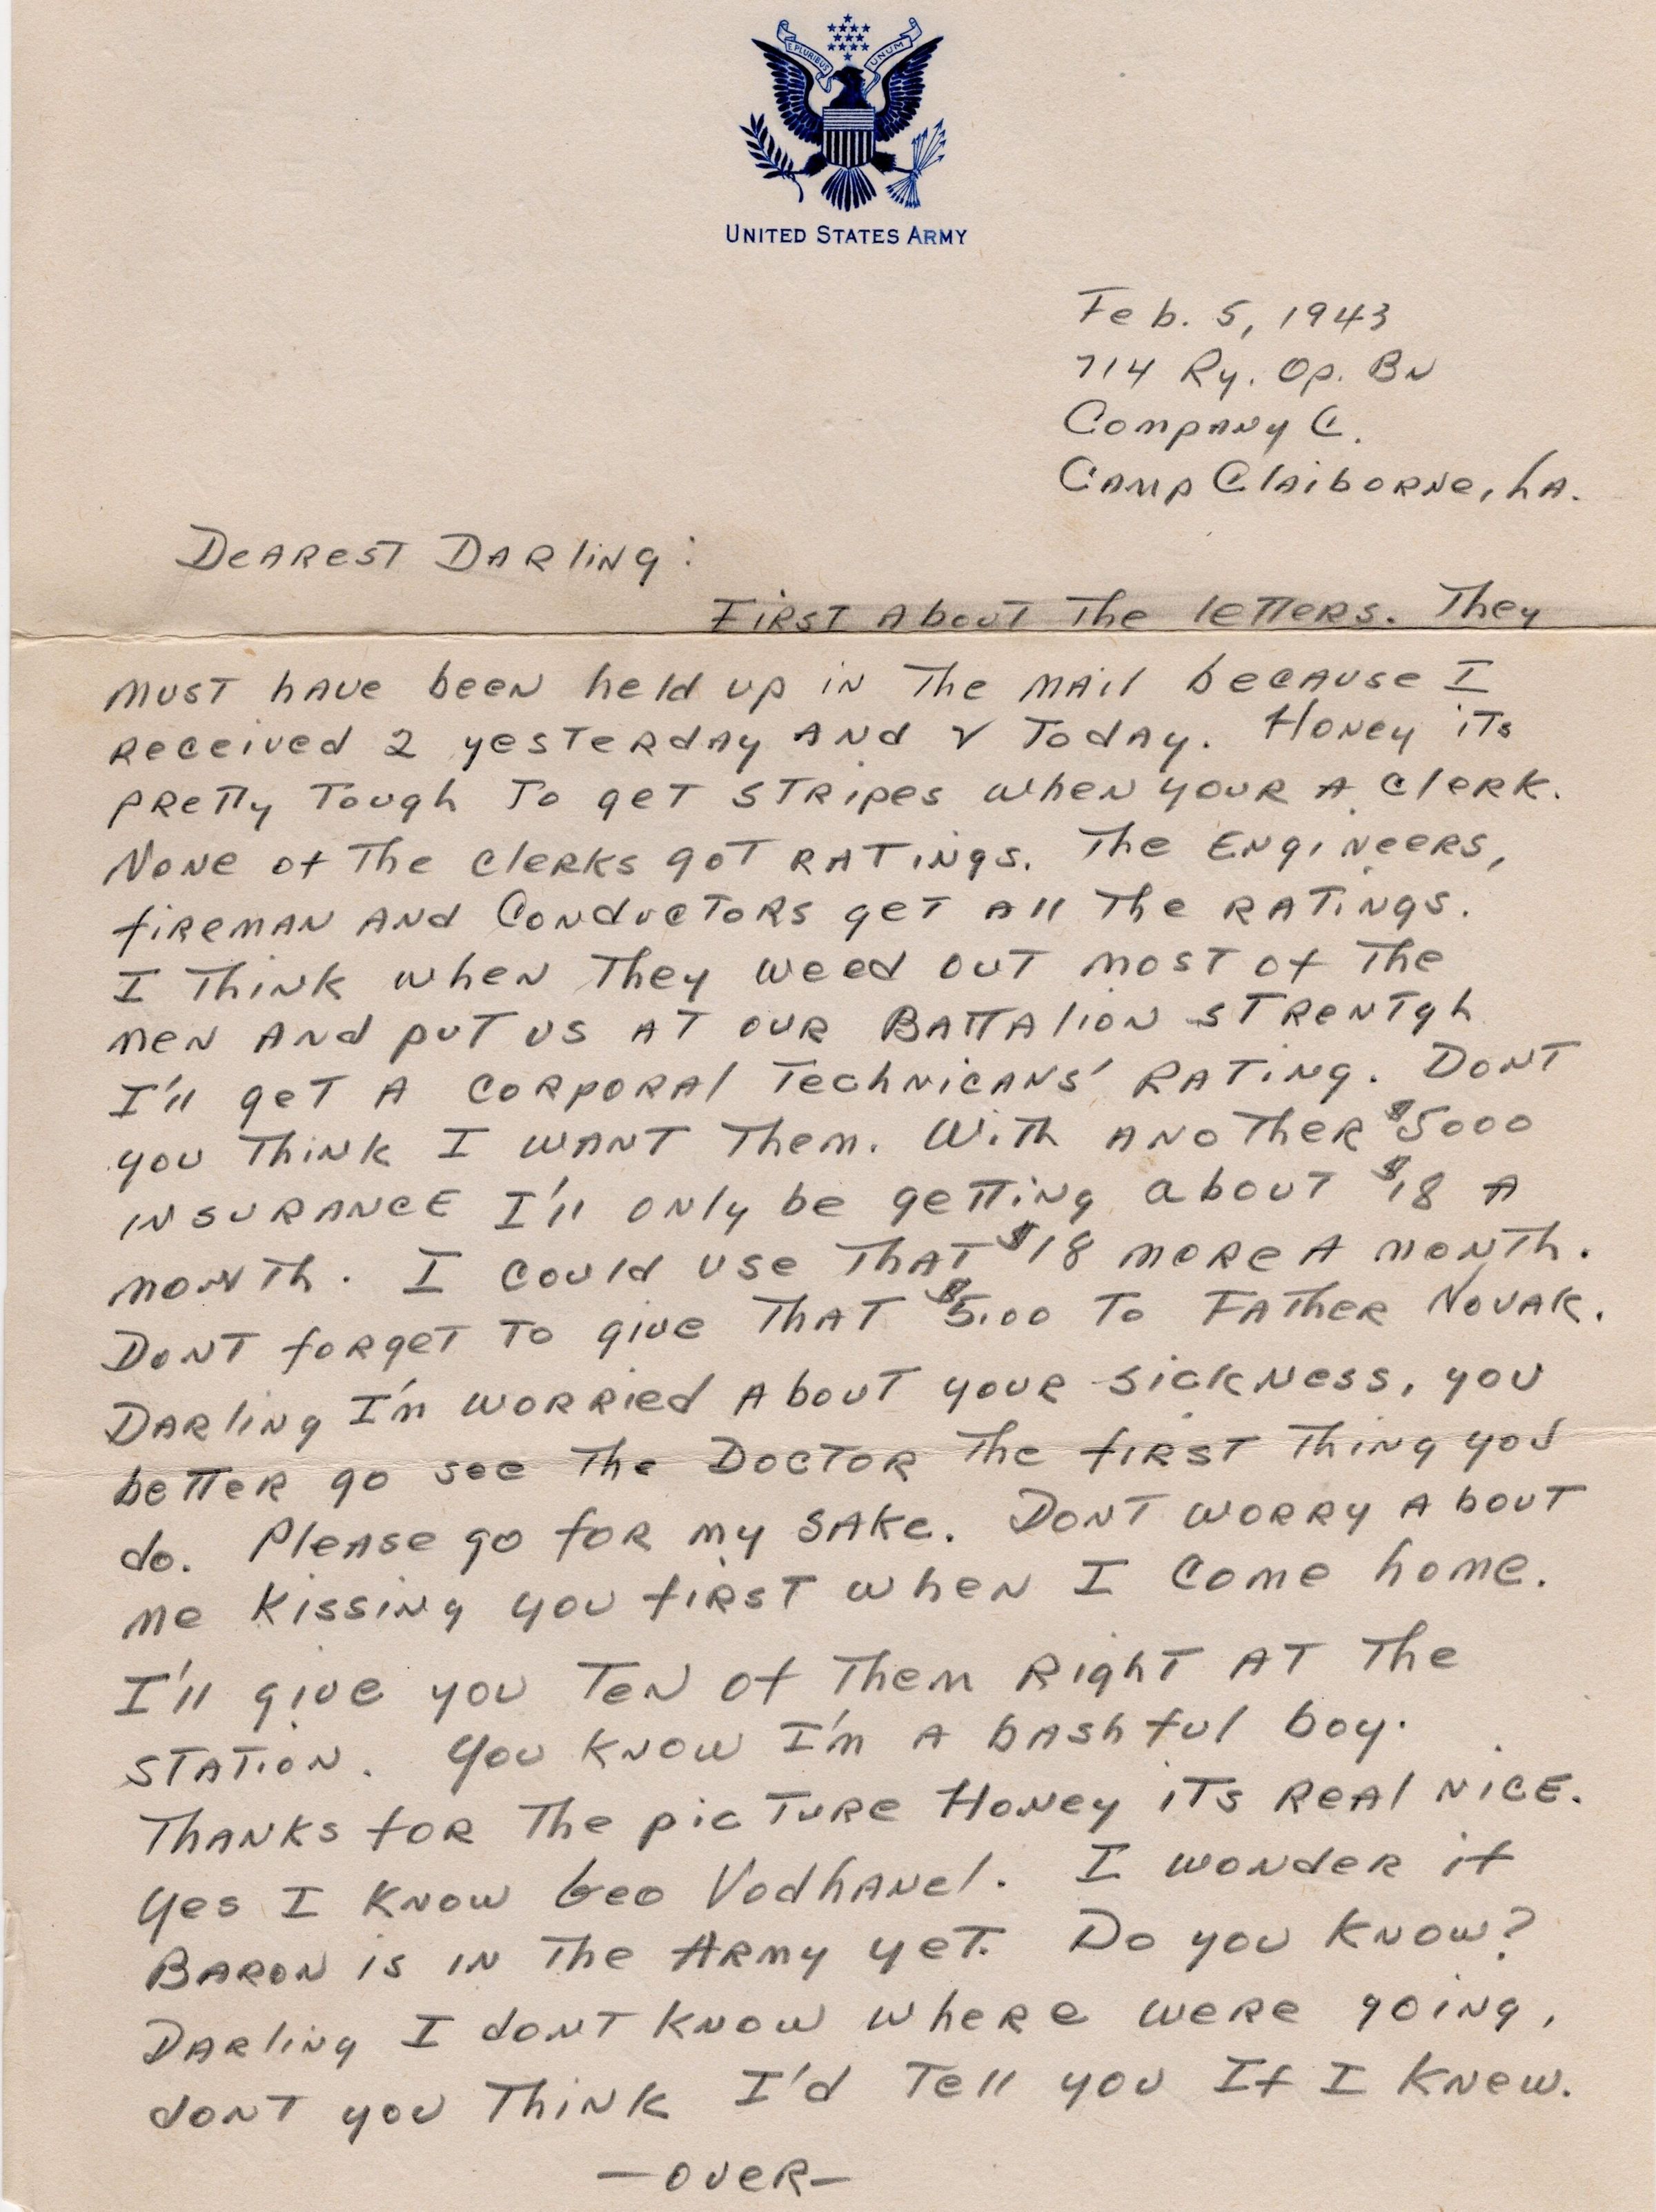 E PLURIBUS UNUM
UNITED STATES ARMY
Feb. 5, 1943
714 Ry. Op. Bn
Company C.
Camp Claiborne, La.
Dearest Darling:
First about the letters. They
must have been held up in the mail because I
received 2 yesterday and 2 today. Honey its
pretty tough to get stripes when your a clerk.
None of the clerks got ratings. The Engineers,
fireman and Conductors get all the ratings.
I think when they weed out most of the
men and put us at our Battalion strentgh
I'll get a corporal technicans' rating. Dont
you think I want them. With another $5000
insurance I'll only be getting about $18 a
month. I could use that $18 more a month.
Dont forget to give that $5.00 to Father Novak.
Darling I'm worried about your sickness, you
better go see the Doctor the first thing you
do. Please go for my sake. Dont worry about
me kissing you first when I come home.
I'll give you ten of them right at the
station. You know I'm a bashful boy.
Thanks for the picture Honey its real nice.
Yes I know Geo Vodhanel. I wonder if
Baron is in the Army yet. Do you know?
Darling I dont know where were going,
dont you think I'd tell you If I knew.
—over—